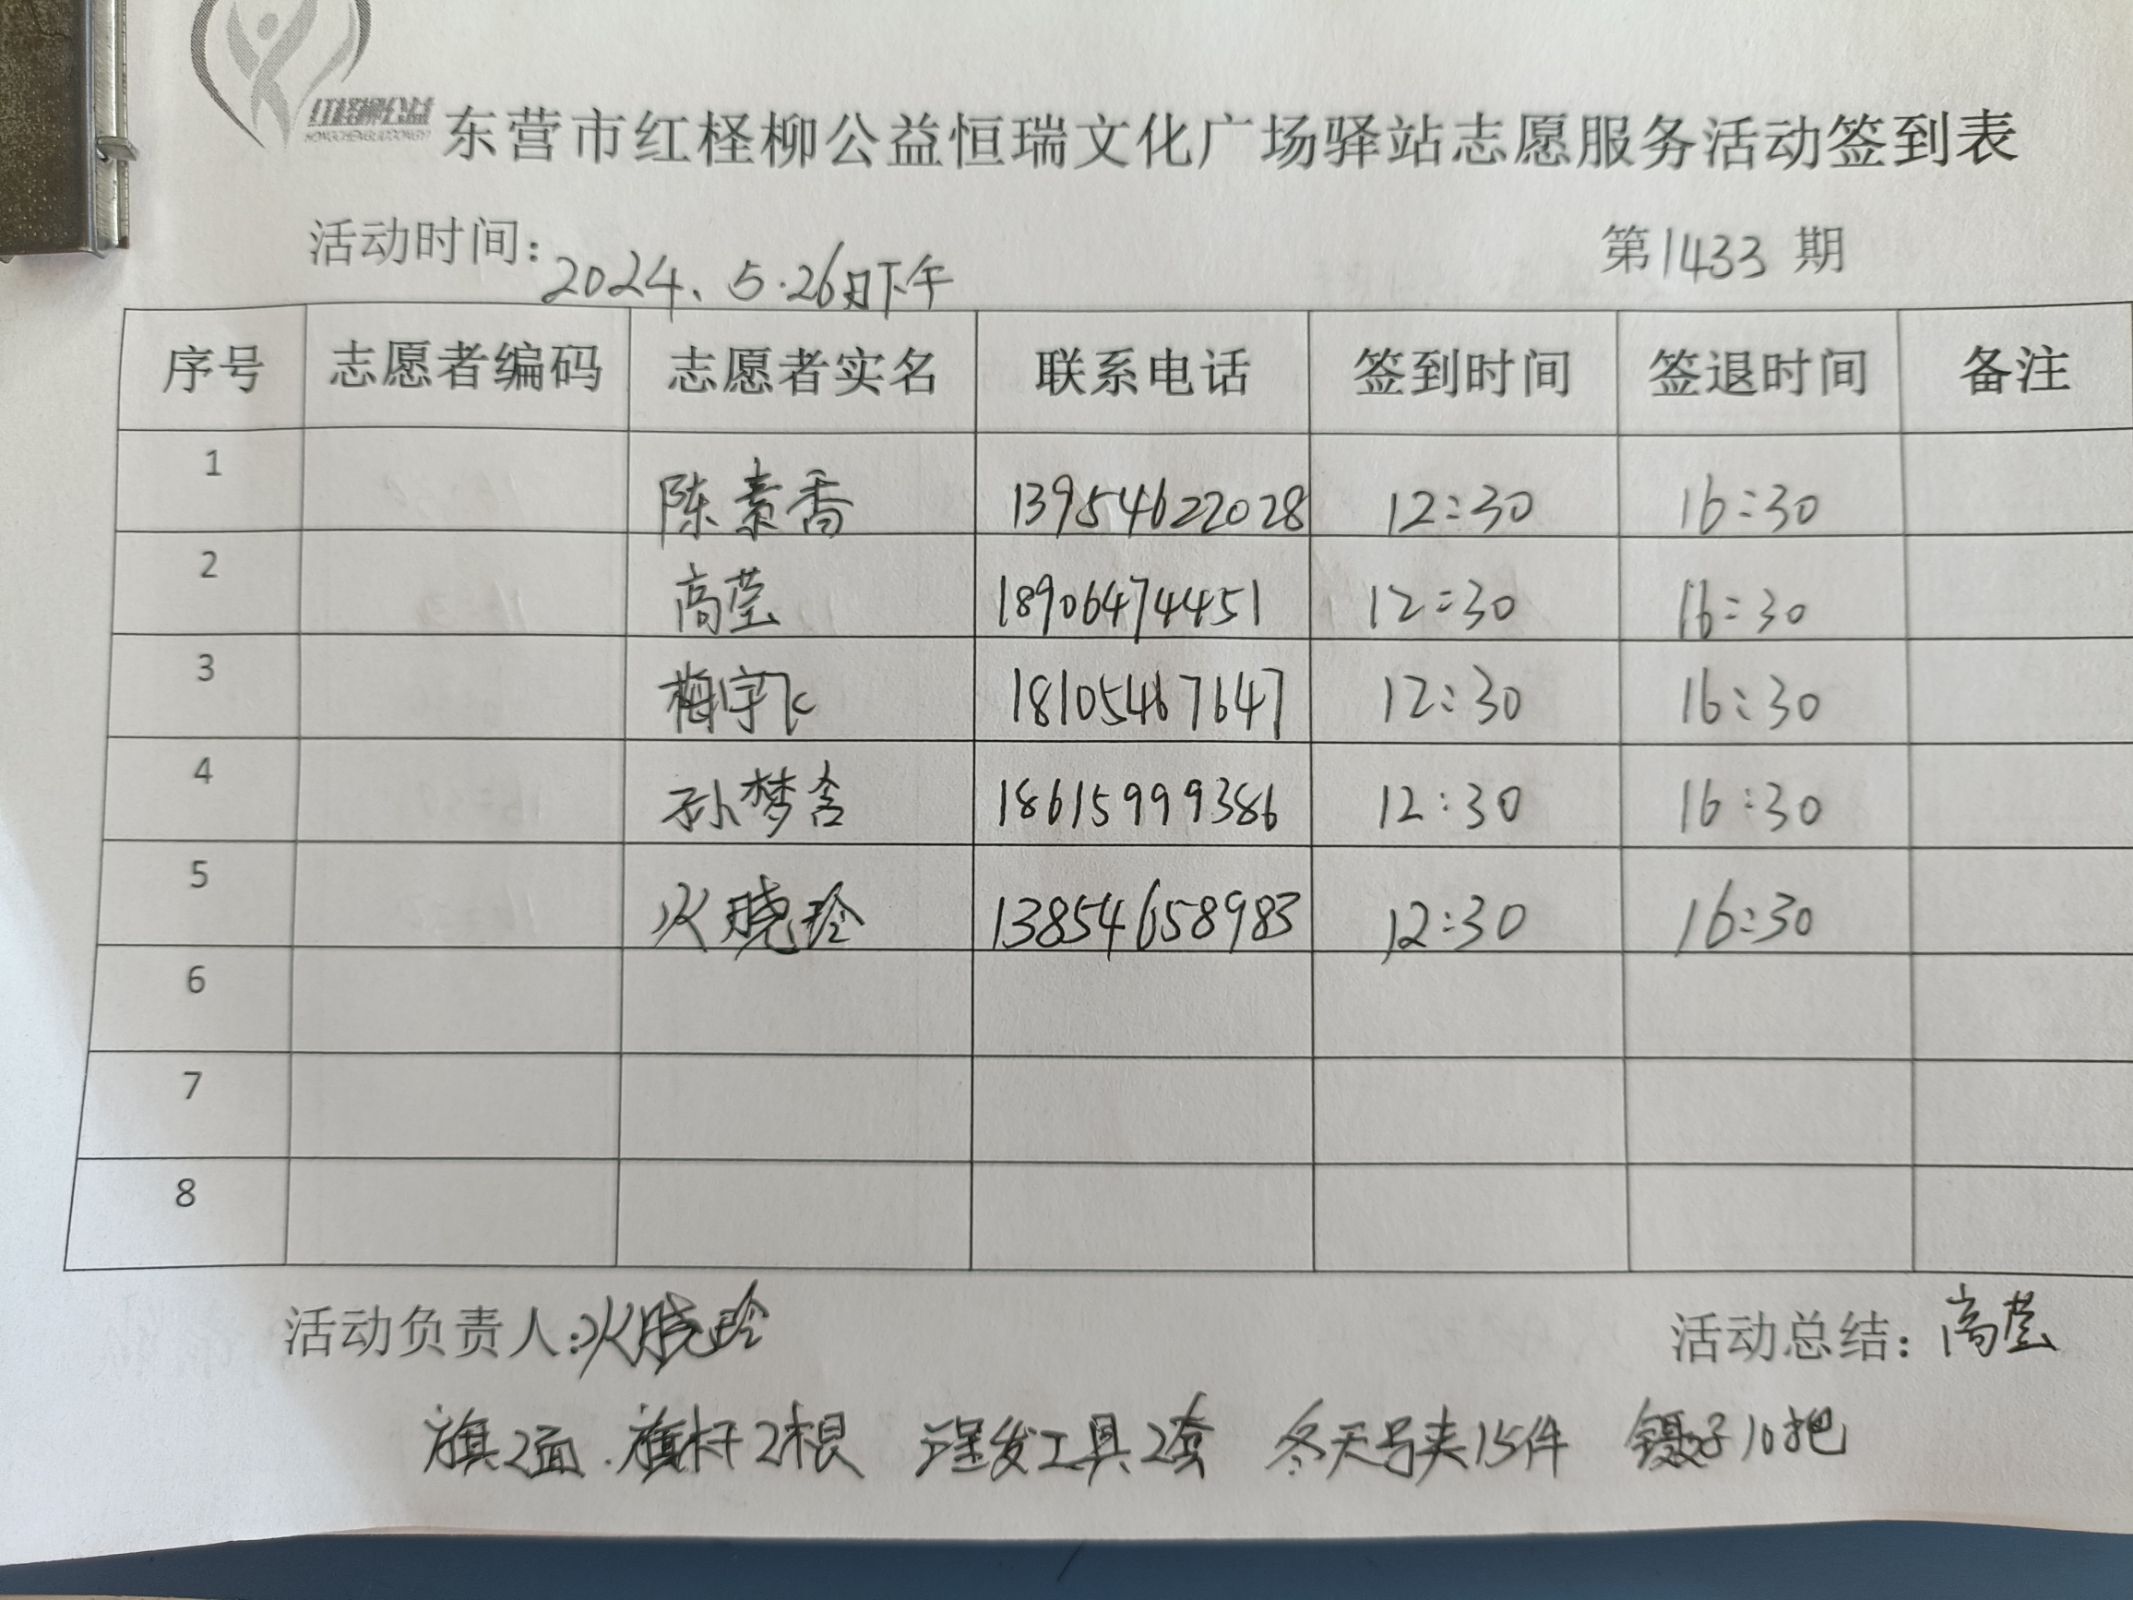 红柽柳公益
HONGCHENGLIUGONGYI
东营市红柽柳公益恒瑞文化广场驿站志愿服务活动签到表
活动时间：2024、5.26日下午 第1433期
序号 志愿者编码 志愿者实名 联系电话 签到时间 签退时间 备注
1 陈素香 13954622028 12:30 16:30
2 高莹 18906474451 12:30 16:30
3 梅宇飞 18105467647 12:30 16:30
4 孙梦含 18615999386 12:30 16:30
5 晓玲 13854658983 12:30 16:30
6
7
8
活动负责人：晓玲 活动总结：高莹
旗2面.旗杆2根 理发工具2套 冬天号夹15件 镊子10把